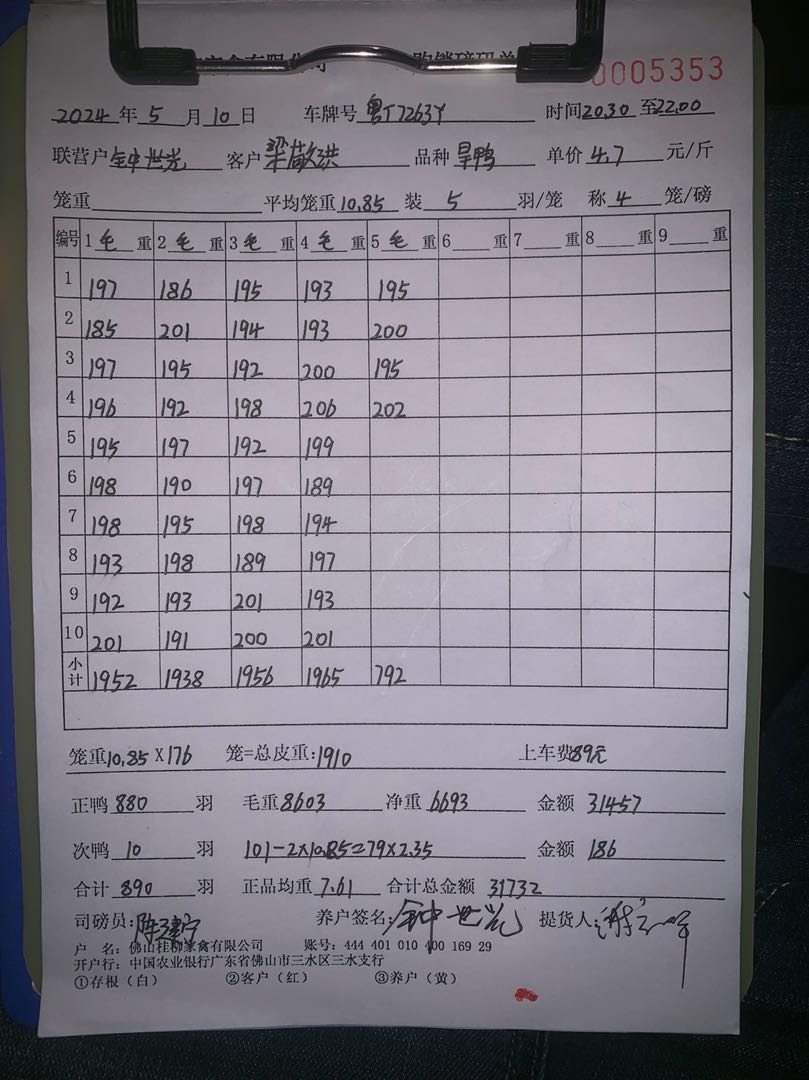 0005353
2024年 5 月 10 日 车牌号 粤T7263Y 时间20.30至22.00
联营户 钟世光 客户 梁敬洪 品种 旱鸭 单价 4.7 元/斤
笼重 平均笼重 10.85 装 5 羽/笼 称 4 笼/磅
编号 1 毛 重 2 毛 重 3 毛 重 4 毛 重 5 毛 重 6 重 7 重 8 重 9 重
1 197 186 195 193 195
2 185 201 194 193 200
3 197 195 192 200 195
4 196 192 198 206 202
5 195 197 192 199
6 198 190 197 189
7 198 195 198 194
8 193 198 189 197
9 192 193 201 193
10 201 191 200 201
小计 1952 1938 1956 1965 792
笼重10.85 X176 笼=总皮重:1910 上车费89元
正鸭 880 羽 毛重8603 净重 6693 金额 31457
次鸭 10 羽 101-2X10.85=79X2.35 金额 186
合计 890 羽 正品均重 7.61 合计总金额 31732
司磅员: 养户签名: 钟世光 提货人:
户 名: 佛山桂柳家禽有限公司 账号: 444 401 010 400 169 29
开户行: 中国农业银行广东省佛山市三水区三水支行
①存根（白） ②客户（红） ③养户（黄）